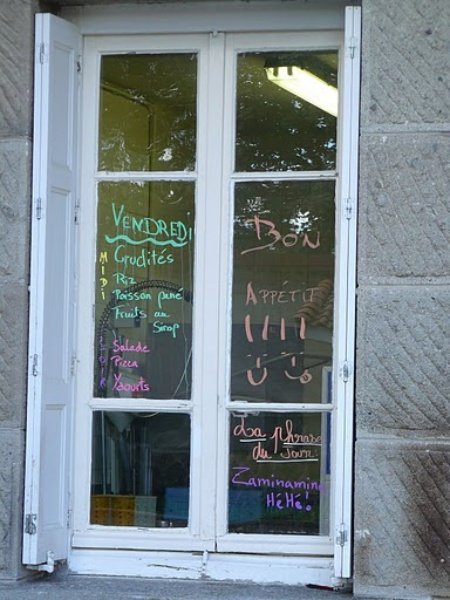 VENDREDI
MIDI
Crudités
Riz
Poisson pané
Fruits au
Sirop
SOIR
Salade
Pizza
Yaourts
BON
APPÉTIT
!!!!
La phrase
du Jour:
Zaminamina
HéHé!